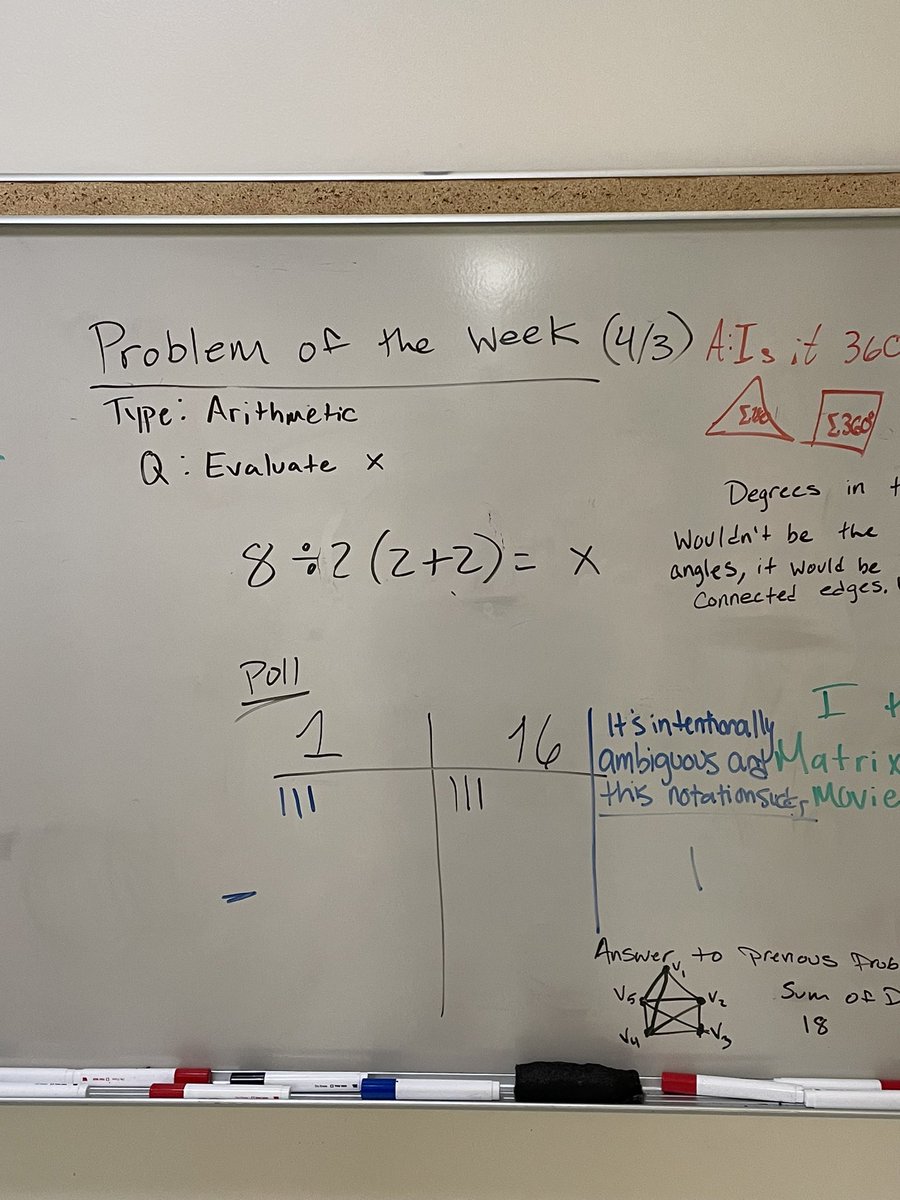 Problem of the Week (4/3)
Type: Arithmetic
Q: Evaluate x
8÷2(2+2)= x
Poll
1
16
It's intentionally
ambiguous and
this notation
A: Is it 360
Σ360°
Degrees in
Wouldn't be the
angles, it would be
connected edges.
I
Matrix
Movie
Answer to previous
V1
V5
V2
V4
V3
Sum of
18